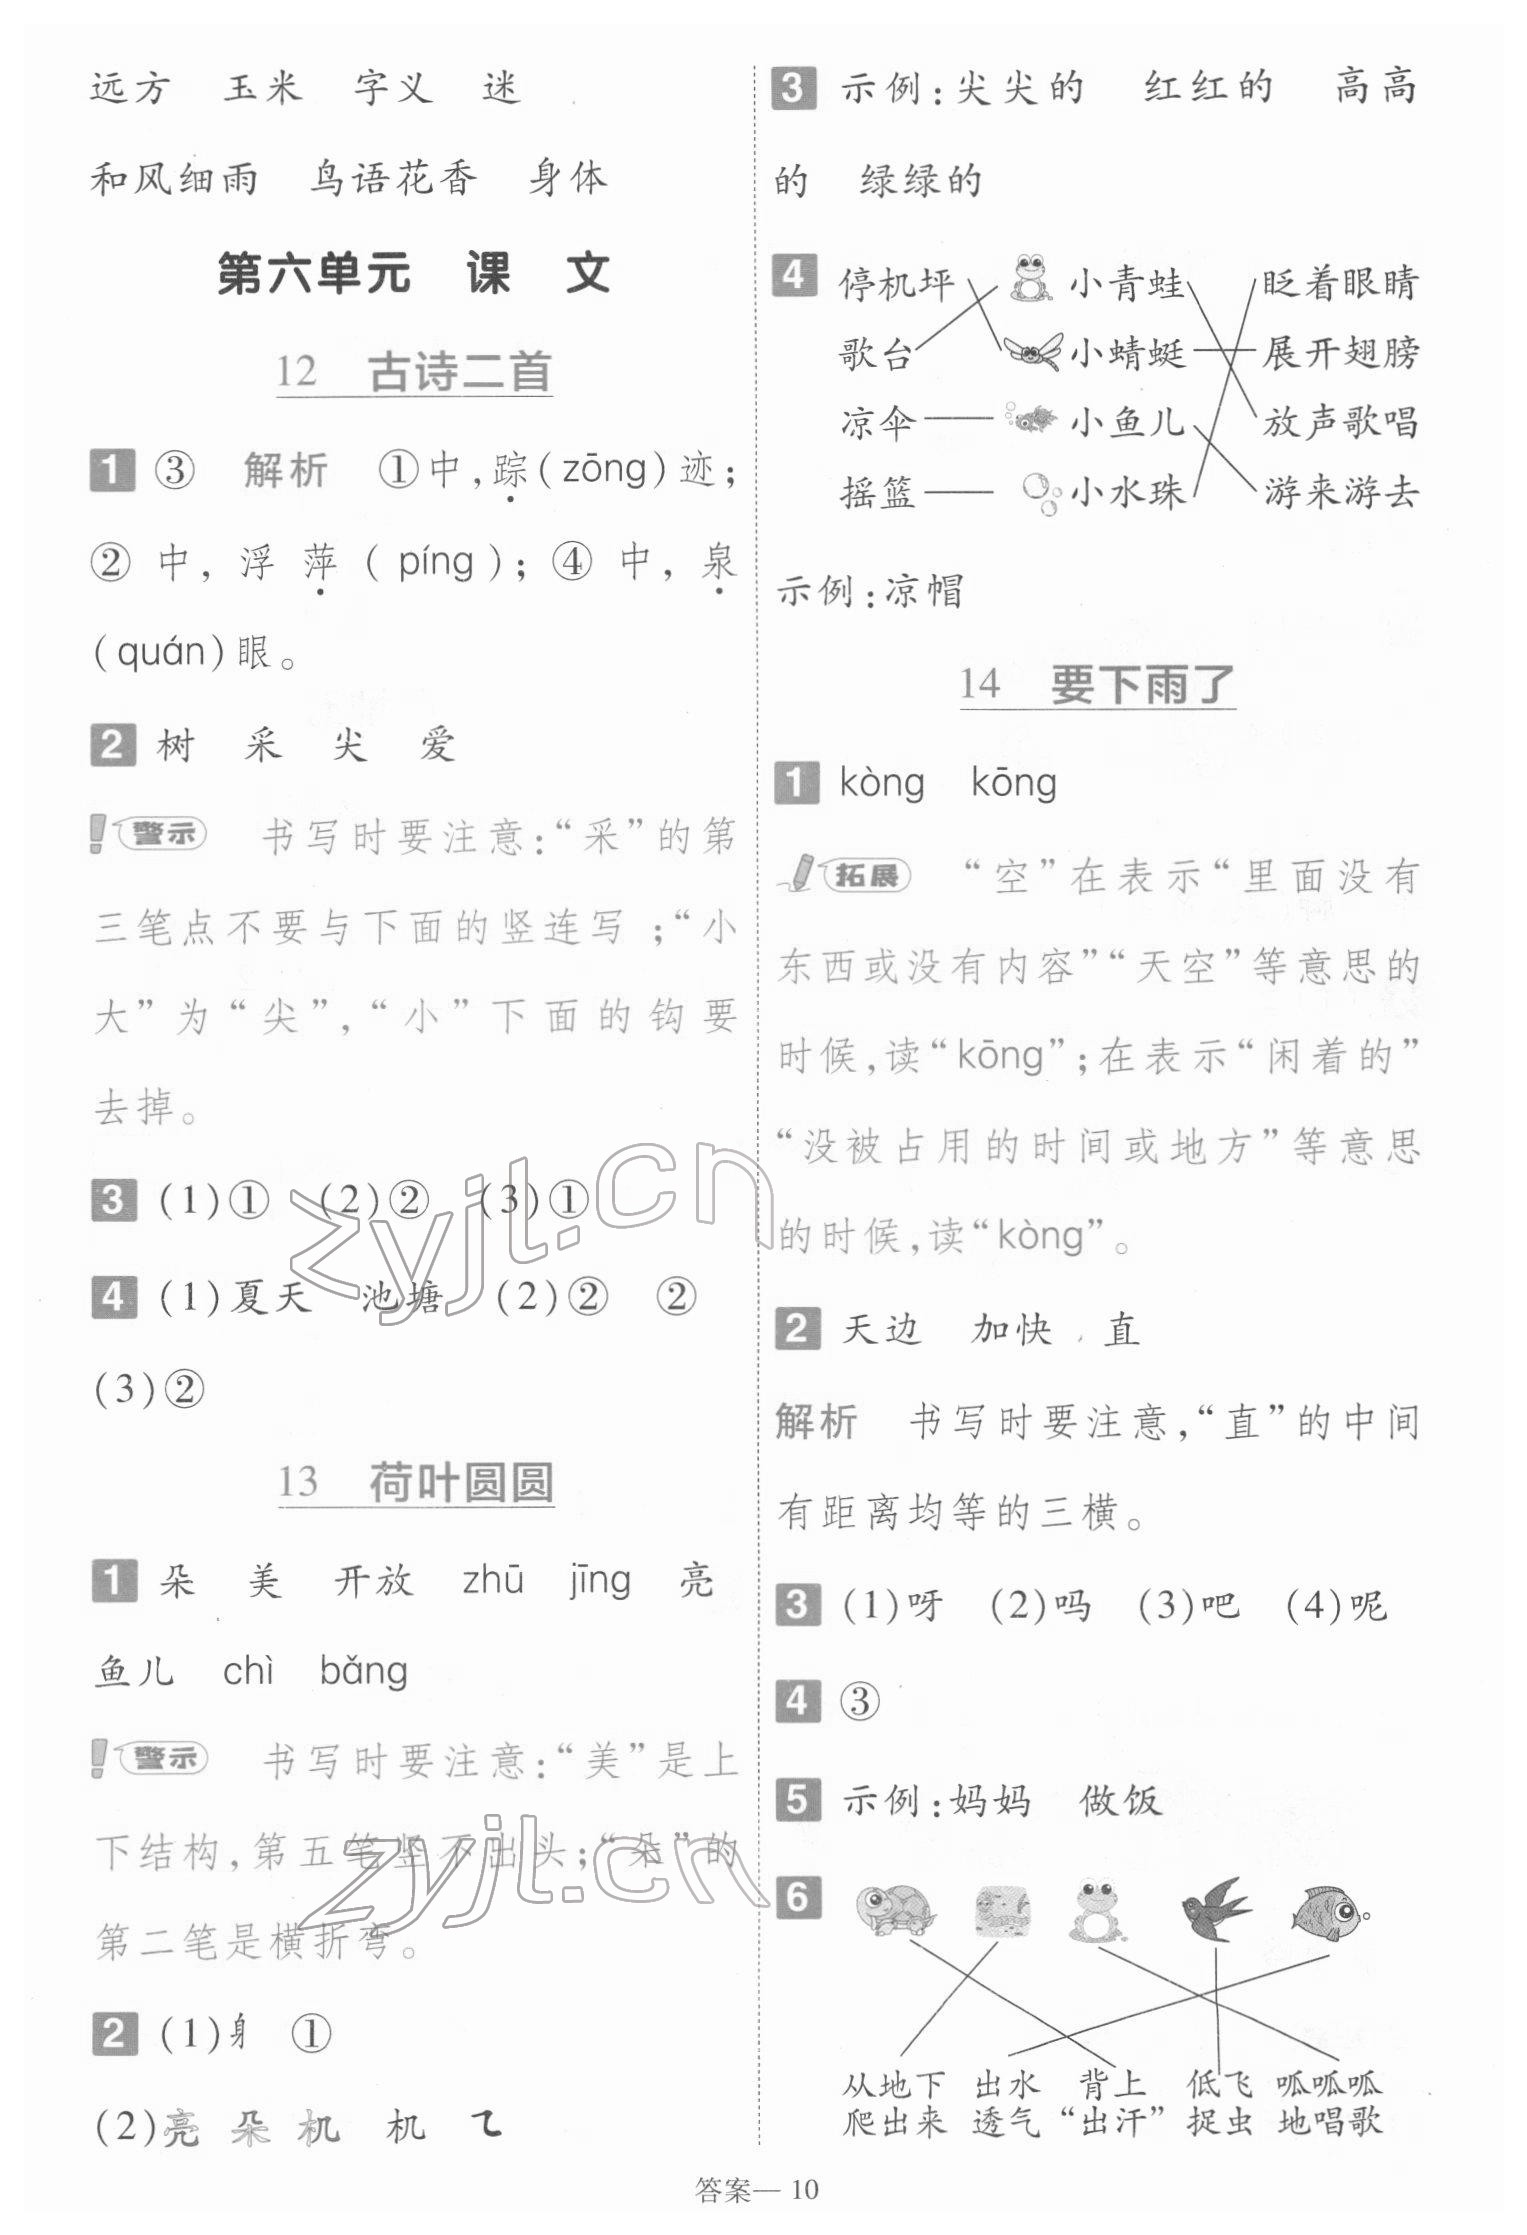 远方 玉米 字义 迷
和风细雨 鸟语花香 身体
第六单元 课 文
12 古诗二首
1 ③ 解析 ①中,踪(zōng)迹;
② 中, 浮 萍 (píng); ④ 中, 泉
(quán)眼。
2 树 采 尖 爱
警示 书写时要注意:“采”的第
三笔点不要与下面的竖连写;“小
大”为“尖”,“小”下面的钩要
去掉。
3 (1)① (2)② (3)①
4 (1)夏天 池塘 (2)② ②
(3)②
13 荷叶圆圆
1 朵 美 开放 zhū jīng 亮
鱼儿 chì bǎng
警示 书写时要注意:“美”是上
下结构,第五笔竖不出头;“朵”的
第二笔是横折弯。
2 (1)身 ①
(2)亮 朵 机 机 ㇈
3 示例:尖尖的 红红的 高高
的 绿绿的
4 停机坪 小青蛙 眨着眼睛
歌台 小蜻蜓 展开翅膀
凉伞 小鱼儿 放声歌唱
摇篮 小水珠 游来游去
示例:凉帽
14 要下雨了
1 kòng kōng
拓展 “空”在表示“里面没有
东西或没有内容”“天空”等意思的
时候,读“kōng”;在表示“闲着的”
“没被占用的时间或地方”等意思
的时候,读“kòng”。
2 天边 加快 直
解析 书写时要注意,“直”的中间
有距离均等的三横。
3 (1)呀 (2)吗 (3)吧 (4)呢
4 ③
5 示例:妈妈 做饭
6
从地下 出水 背上 低飞 呱呱呱
爬出来 透气 “出汗” 捉虫 地唱歌
答案— 10
zyjl.cn
zyjl.cn